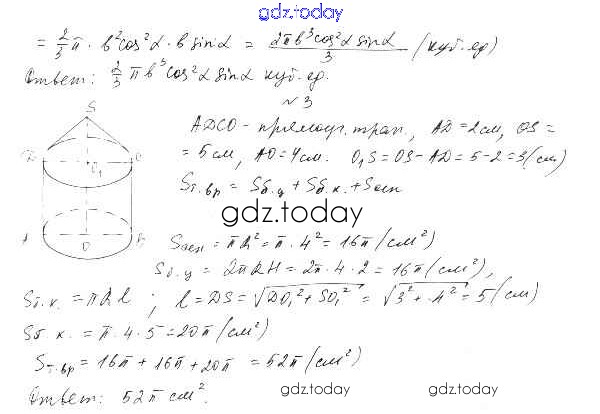 gdz.today
= 2/3 π · b² cos² α · b sin α = 2πb³ cos² α sin α / 3 (куб. ед)
Ответ: 2/3 π b³ cos² α sin α куб. ед.
№3
S
D O₁ C
A O B
ADSO – прямоуг. трап, AD = 2 см, OS =
= 5 см, AO = 4 см. O₁S = OS – AD = 5 – 2 = 3 (см)
Sт.вр = Sб.ц + Sб.к. + Sосн
gdz.today
Sосн = πR² = π · 4² = 16π (см²)
Sб.ц = 2πRH = 2π · 4 · 2 = 16π (см²),
Sб.к. = πRl ; l = DS = √DO₁² + SO₁² = √3² + 4² = 5 (см)
Sб.к. = π · 4 · 5 = 20π (см²)
Sт.вр = 16π + 16π + 20π = 52π (см²)
Ответ: 52π см².
gdz.today gdz.today